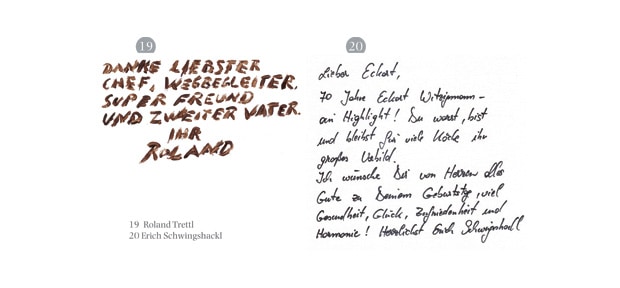 19
DANKE LIEBSTER
CHEF, WEGBEGLEITER,
SUPER FREUND
UND ZWEITER VATER.
IHR
ROLAND
20
Lieber Eckart,
70 Jahre Eckart Witzigmann –
ein Highlight! Du warst, bist
und bleibst für viele Köche ihr
großes Vorbild.
Ich wünsche Dir von Herzen alles
Gute zu Deinem Geburtstag, viel
Gesundheit, Glück, Zufriedenheit und
Harmonie! Herzlichst Erich Schwingshackl
19 Roland Trettl
20 Erich Schwingshackl